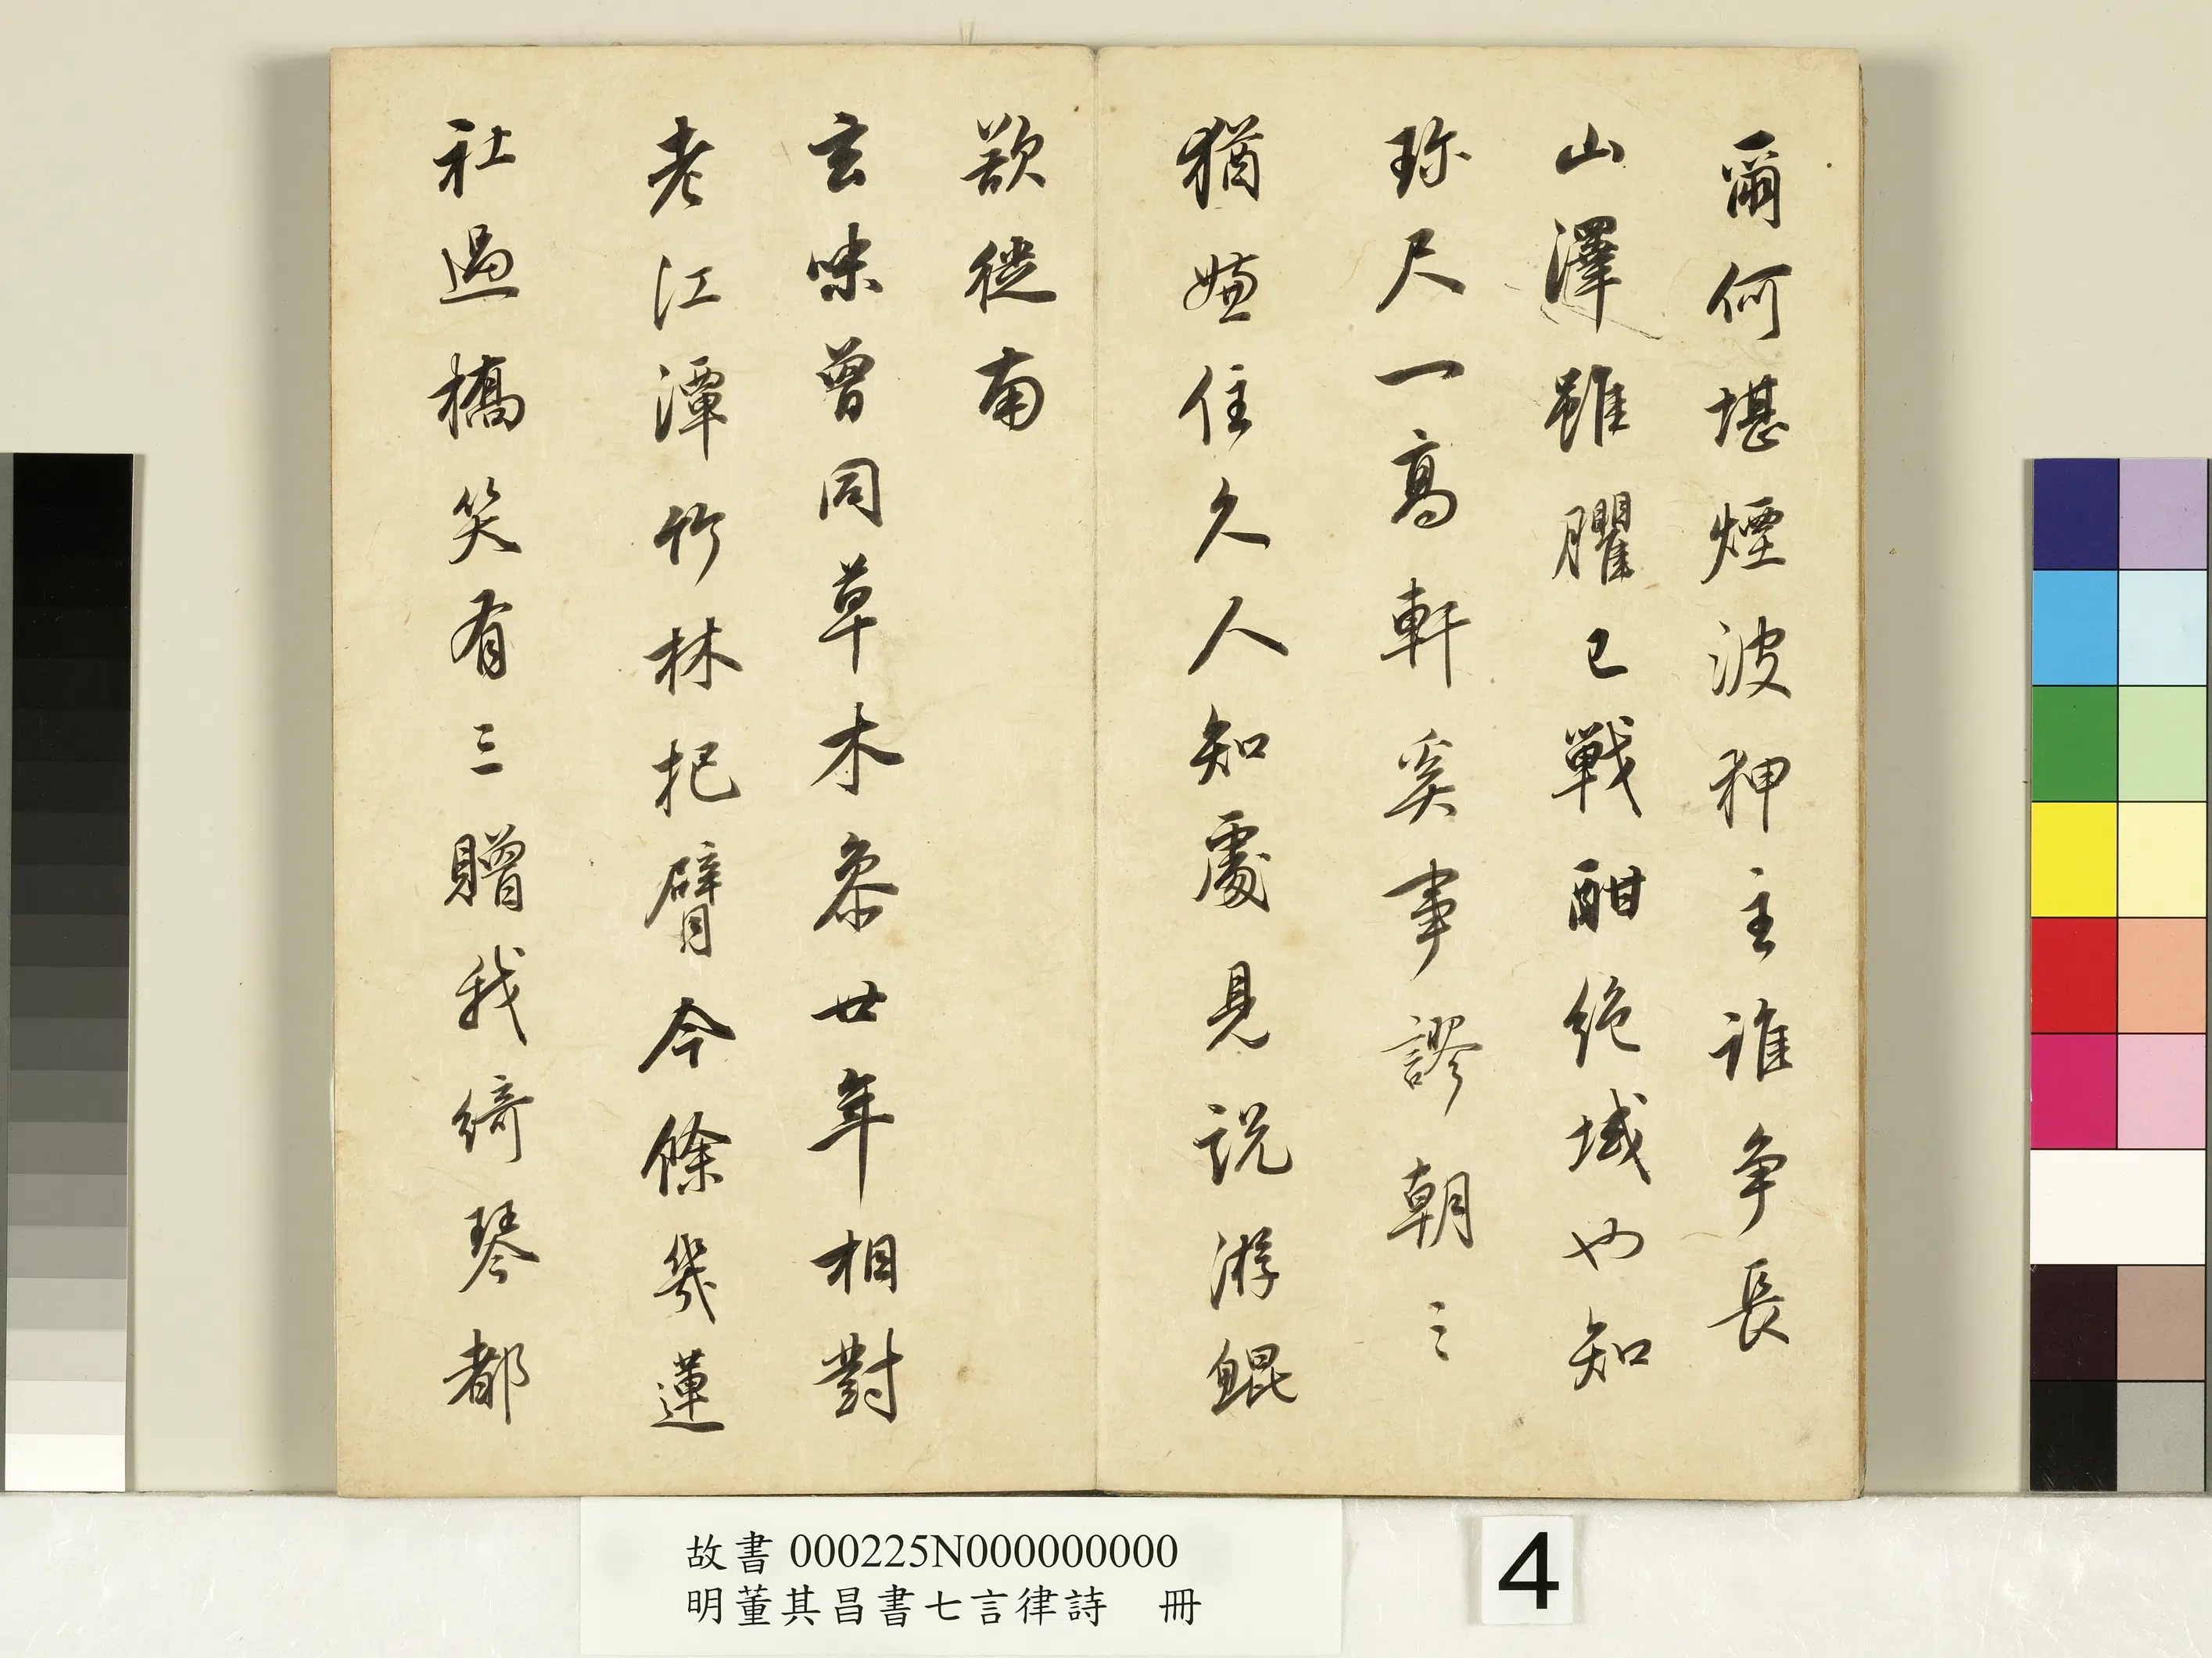 爾何堪煙波狎主誰爭長
山澤雖臞已戰酣絕域也知
珎尺一高軒奚事謬朝〻
猶嫌住久人知處見說游鯤
欲徙南
玄味曾同草木參廿年相對
老江潭竹林把臂今餘幾蓮
社過橋笑有三贈我綺琴都
故書000225N000000000
明董其昌書七言律詩 冊
4